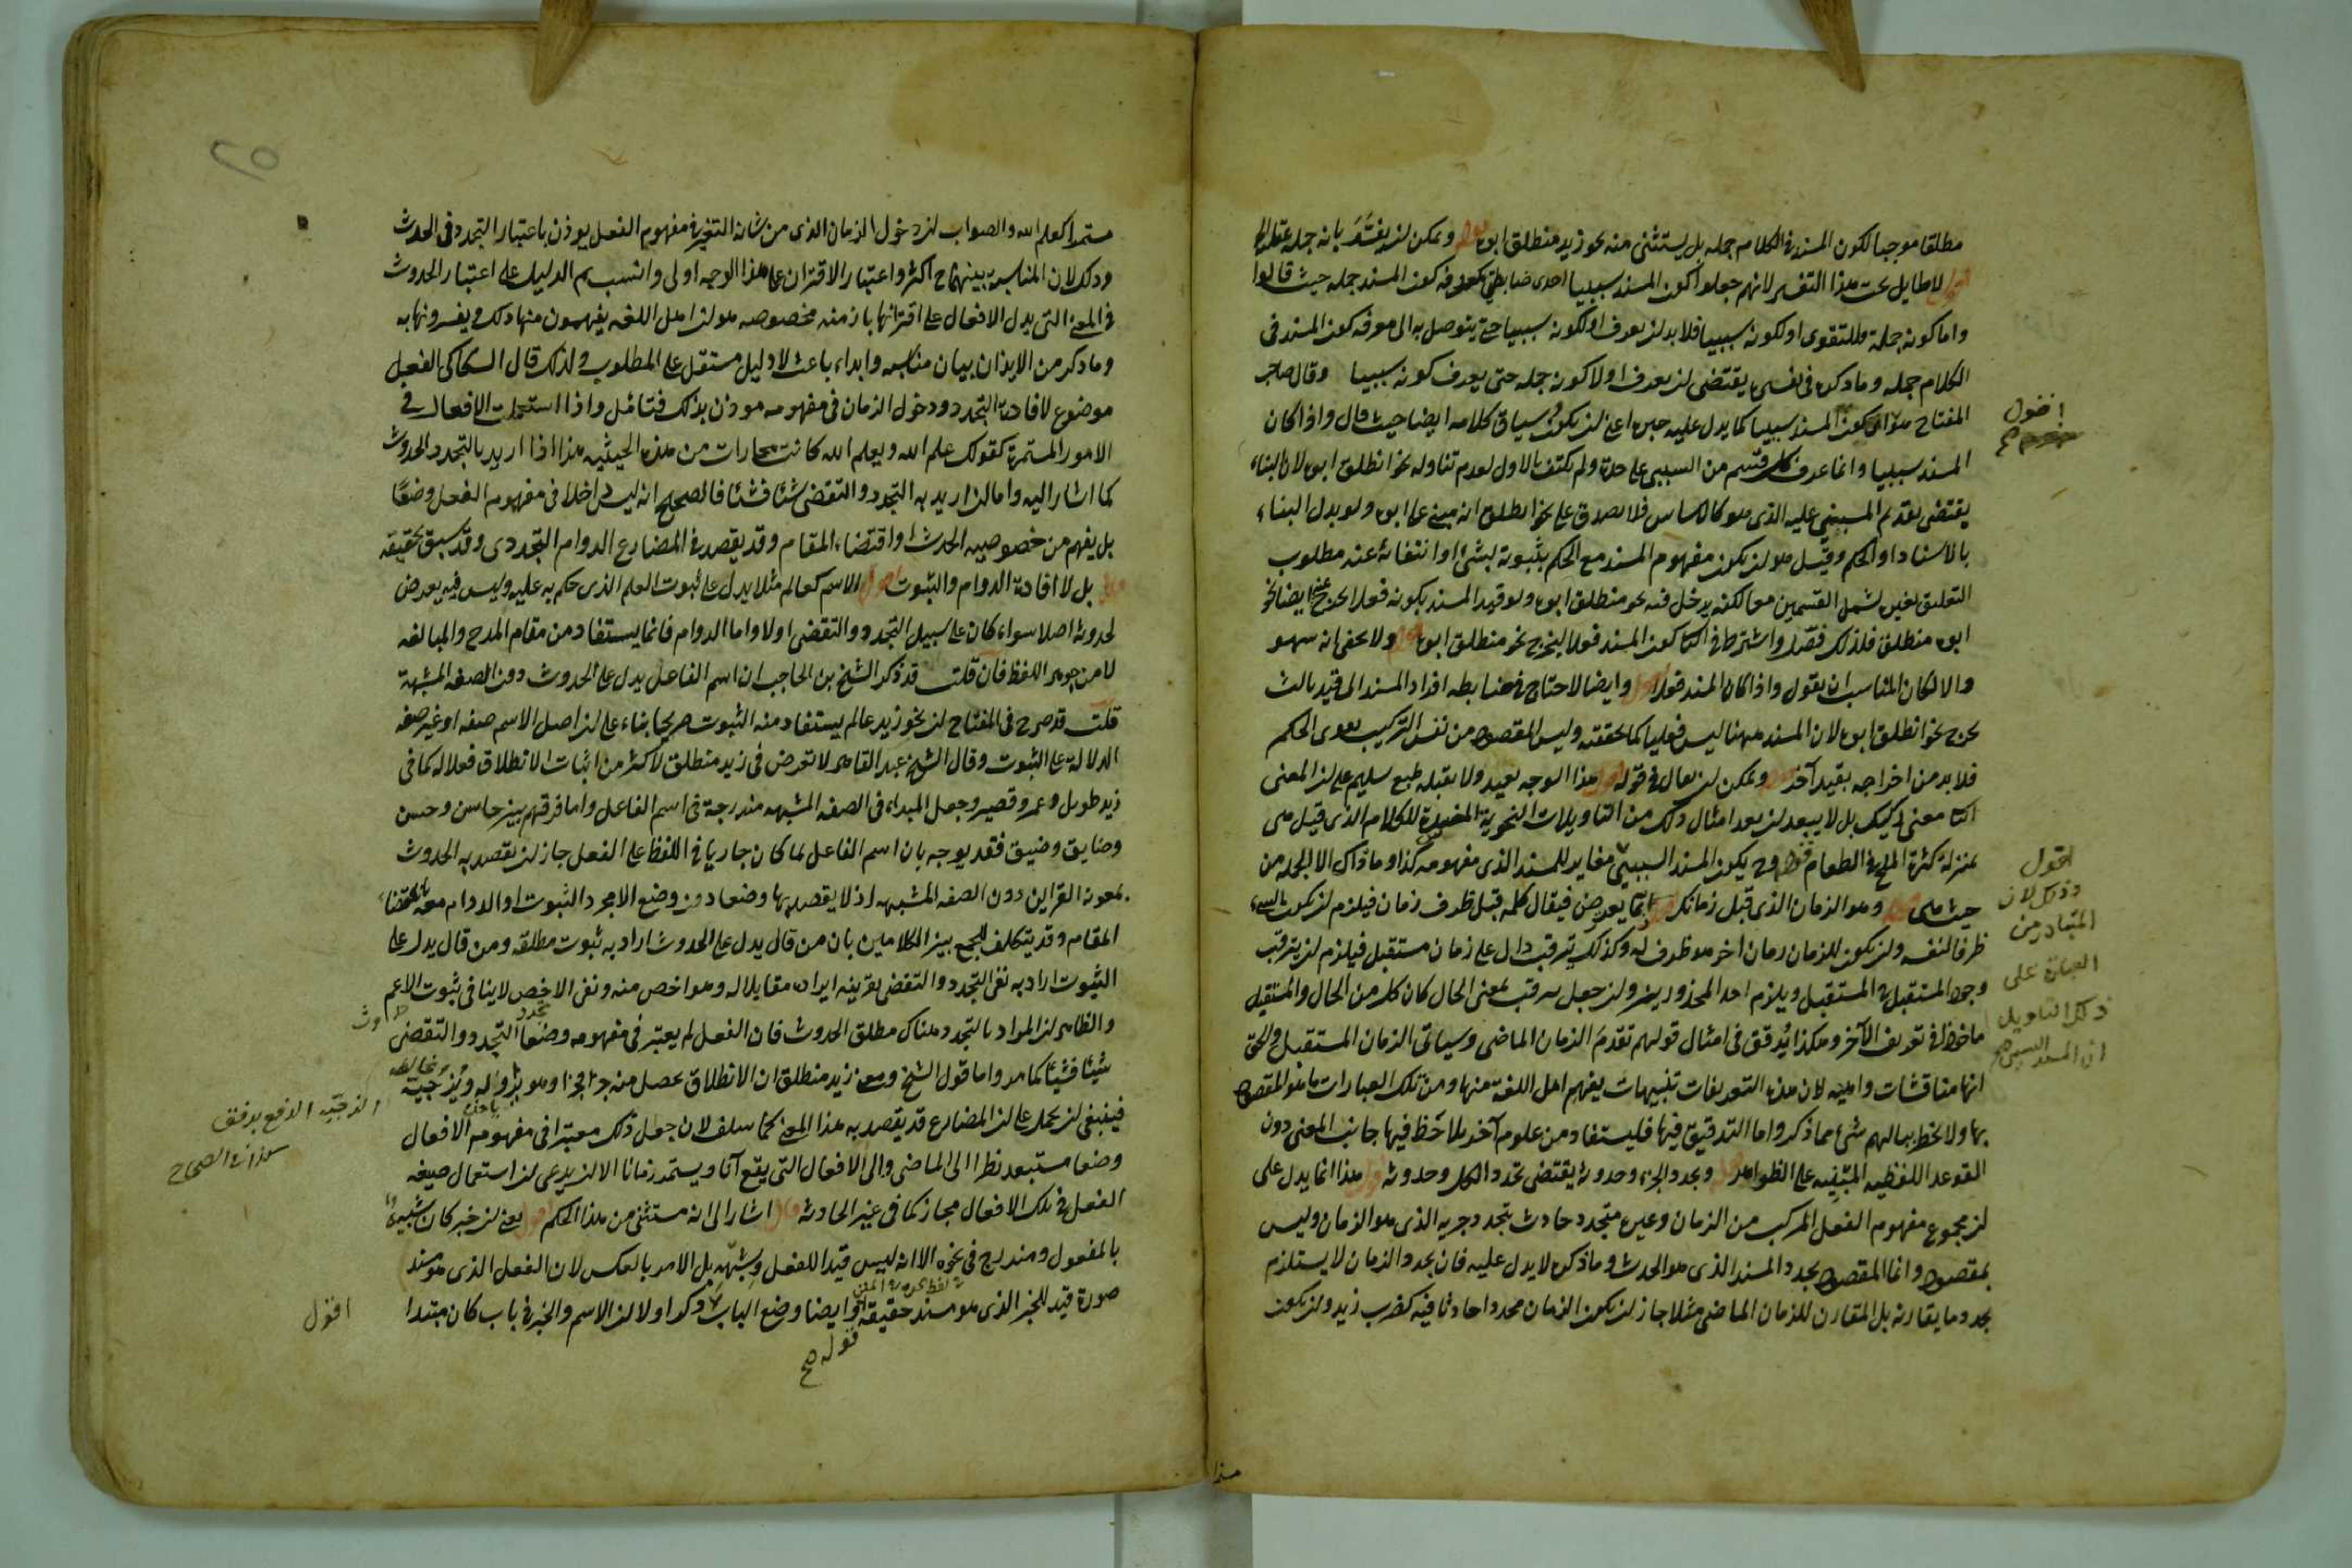 مطلقا موجبا لكون المسند فى الكلام جمله بل يستثنى منه نحو زيد منطلق ابوه قوله ويمكن لن يفسر بانه جمله علقت الى
اقول لا طايل تحت هذا التفسير لانهم جعلوا كون المسند سببيا احدى ضابطتى معرفه كون المسند جمله حيث قالوا
واما كونه جملة فللتقوى او لكونه سببيا فلا بد لن يعرف اولا كونه سببيا حتى يتوصل به الى معرفه كون المسند فى
الكلام جمله وما ذكره فى تفسيره يقتضى لن يعرف اولا كونه جمله حتى يعرف كونه سببيا وقال صاحب
المفتاح هو ان يكون المسند سببيا كما يدل عليه خبره اعنى لن يكون وسياق كلامه ايضا حيث قال واذا كان
المسند سببيا وانما عرف كل قسم من السببى على حدة ولم يكتف بالاول لعدم تناوله نحو انطلق ابوه لان البناء
يقتضى تقديم المبنى عليه الذى هو كالاساس فلا يصدق على نحو انطلق انه مبنى على ابوه ولو بدل البناء
بالاسناد او الحكم وقيل هو لن يكون مفهوم المسند مع الحكم بثبوته لشئ او انتفائه عنه مطلوب
التعليق لغيره لشمل القسمين معا لكنه يدخل فيه نحو منطلق ابوه ولو قيد المسند بكونه فعلا لخرج عنه ايضا نحو
ابوه منطلق فلذلك فصّل واشترط فى الثانى كون المسند فعلا ليخرج نحو منطلق ابوه قوله ولا يخفى انه سهو
والا لكان المناسب ان يقول واذا كان المسند فعلا اقول وايضا لاحتاج فى ضابطه افراد المسند الى قيد ثالث
يخرج نحو انطلق ابوه لان المسند ههنا ليس فعليا كما حققته وليس المقصود من نفس التركيب تقوى الحكم
فلا بد من اخراجه بقيد آخر قوله ويمكن لن يقال فى قوله اقول هذا الوجه بعيد ولا يقبله طبع سليم على لن المعنى
الثانى معنى ركيك بل لا يبعد لن يعد امثال ذلك من التاويلات النحوية المفسدة للكلام الذى قيل هى
بمنزلة كثرة الملح فى الطعام قوله وح يكون المسند السببىّ مغاير للمسند الذى مفهومه كذا وما ذاك الا الجمله من
حيث هى قوله وهو الزمان الذى قبل زمانك اقول ربما يعترض فيقال كلمه قبل ظرف زمان فيلزم لن يكون الشىء
ظرفا لنفسه ولن يكون للزمان زمان اخر هو ظرف له وكذلك يترقب دال على زمان مستقبل فيلزم لن يترقب
وجود المستقبل فى المستقبل ويلزم احد المحذورين ولن جعل يترقب بمعنى الحال كان كل من الحال والمستقبل
ماخوذا فى تعريف الآخر وهكذا يُدقق فى امثال قولهم تقدمَ الزمان الماضى وسياتى الزمان المستقبل والحق
انها مناقشات واهيه لان هذه التعريفات تنبيهات يفهم اهل اللغه منها ومن تلك العبارات ما هو المقصود
بها ولا يخطر ببالهم شئ مما ذكر واما التدقيق فيها فليستفاد من علوم آخر يلاحَظ فيها جانب المعنى دون
القوعد اللفظيه المبْنِيه على الظواهر قوله وتجدد الجزء وحدوثه يقتضى تجدد الكل وحدوثه اقول هذا انما يدل على
لن مجموع مفهوم الفعل المركب من الزمان وغيره متجدد حادث بتجدد جزيه الذى هو الزمان وليس
بمقصود وانما المقصود تجدد المسند الذى هو الحدث وما ذكره لا يدل عليه فان تجدد الزمان لا يستلزم
تجدد ما يقارنه بل المقارن للزمان الماضى مثلا جاز لن يكون الزمان متجددا حادثا فيه كضرب زيد ولن يكون
افول
اقول
وذلك لان
المتبادر من
العبارة على
ذلك التاويل
ان المسند السببى
هذا
مستمرا كعلم الله والصواب لن دخول الزمان الذى من شانه التغير فى مفهوم الفعل يوذن باعتبار التجدد فى الحدث
وذلك لان المناسبة بينهما ح اكثر واعتبار الاقتران على هذا الوجه اولى وانسب ثم الدليل على اعتبار الحدوث
فى المعنى التى يدل الافعال على اقترانها بازمنه مخصوصه هو لن اهل اللغه يفهمون منها ذلك ويفسرونها به
وما ذكر من الايذان بيان مناسبه وابداء باعث لا دليل مستقل على المطلوب ولذلك قال السكاكى الفعل
موضوع لافادة التجدد ودخول الزمان فى مفهومه موذن بذلك فتامّل واذا استعملت الافعال فى
الامور المستمرة كقولك علم الله ويعلم الله كانت مجازات من هذه الحيثيه هذا اذا اريد بالتجدد الحدوث
كما اشار اليه واما لن اريد به التجدد والتقضى شئا فشئا فالصحيح انه ليس داخلا فى مفهوم الفعل وضعًا
بل يفهم من خصوصيه الحدث او اقتضاء المقام وقد يقصد فى المضارع الدوام التجددى وقد سبق تحقيقه
قوله بل لافادة الدوام والثبوت اقول الاسم كعالم مثلا يدل على ثبوت العلم الذى حكم به عليه وليس فيه تعرض
لحدوثه اصلا سواء كان على سبيل التجدد والتقضى اولا واما الدوام فانما يستفاد من مقام المدح والمبالغه
لا من جوهر اللفظ فان قلت قد ذكر الشيخ بن الحاجب ان اسم الفاعل يدل على الحدوث دون الصفه المشبهة
قلت قد صرح فى المفتاح لن نحو زيد عالم يستفاد منه الثبوت صريحا بناء على لن اصل الاسم صفه او غير صفه
الدلالة على الثبوت وقال الشيخ عبد القاهر لا تعرض فى زيد منطلق لاكثر من اثبات الانطلاق فعلا له كما فى
زيد طويل وعمرو قصير وجعل المبداء فى الصفه المشبهه مندرجة فى اسم الفاعل واما فرقهم بين حاسن وحسن
وضايق وضيق فقد يوجه بان اسم الفاعل لما كان جاريا فى اللفظ على الفعل جاز لن يقصد به الحدوث
بمعونه القراين دون الصفه المشبهه اذ لا يقصد بها وضعا دون وضع الا مجرد الثبوت او الدوام معه باقتضاء
المقام وقد يتكلف للجمع بين الكلامين بان من قال يدل على الحدوث اراد به ثبوت مطلقه ومن قال يدل على
الثبوت اراد به نفى التجدد والتقضى بقرينه ايراده مقابلا له وهو اخص منه ونفى الاخص لا ينافى ثبوت الاعم
والظاهر لن المراد بالتجدد هناك مطلق الحدوث فان الفعل لم يعتبر فى مفهومه وضعا التجدد والتقضى
شيئا فشيئا كما مر واما قول الشيخ ومعنى زيد منطلق ان الانطلاق يحصل منه جزءا فجزءا وهو يزاوله ويُزجيه
فينبغى لن يحمل على لن المضارع قد يقصد به هذا المعنى كما سلف لان جعل ذلك معتبرا فى مفهوم الافعال
وضعا مستبعد نظرا الى الماضى والى الافعال التى يقع آنا ويستمر زمانا الا لن يدعى لن استعمال صيغه
الفعل فى تلك الافعال مجاز كما فى غير الحادثة قال اشار الى انه مستثنى من هذا الحكم اقول يعنى لن خبر كان شبيه
بالمفعول ومندرج فى نحوه الا انه ليس قيدا للفعل وشبهه بل الامر بالعكس لان الفعل الذى هو مسند
صورة قيد للخبر الذى هو مسند حقيقة قوله وايضا وضع الباب وكدا اولا لن الاسم والخبر فى باب كان مبتدا
الزجيه الدفع برفق
الصحاح
قوله صح
اقول